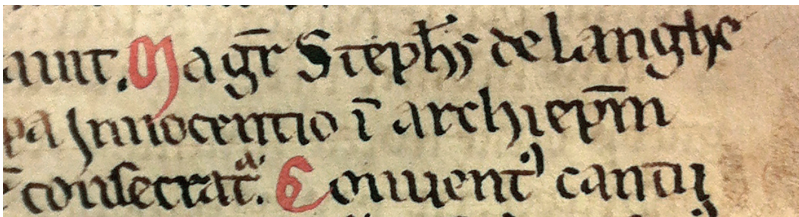 aunt. Magr̄ Steph̄s de langhe
pa Innocentio ī archiep̄m
consecrat᷑. Conuent᷒ cantu